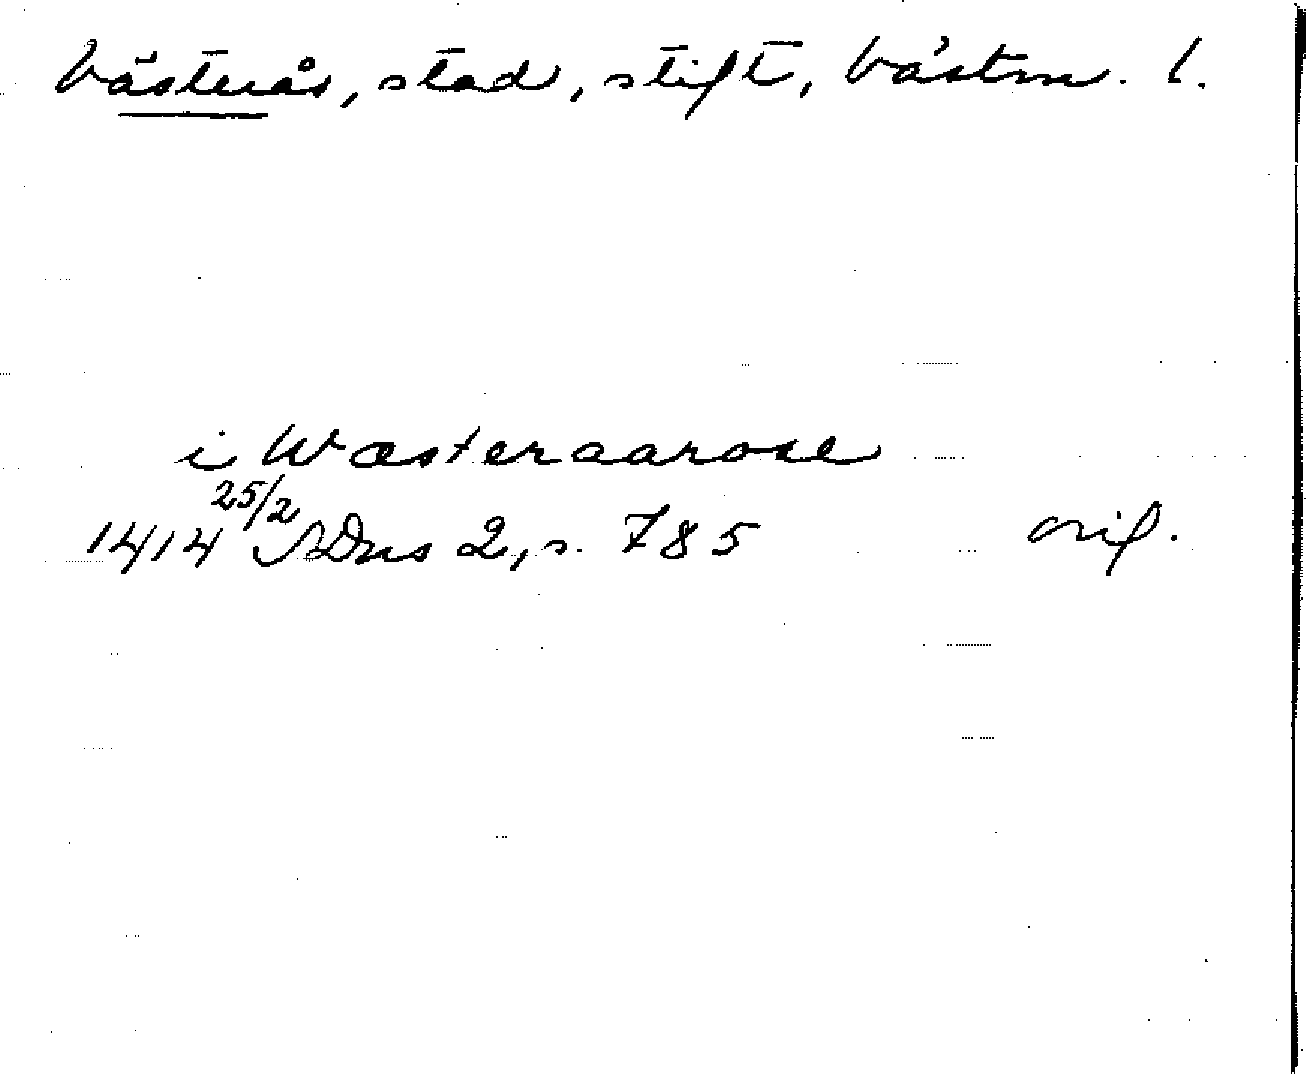 Västerås, stad, stift, Västm. l.
i Wæsteraarose
1414 25/2 SDns 2, s. 785 orig.